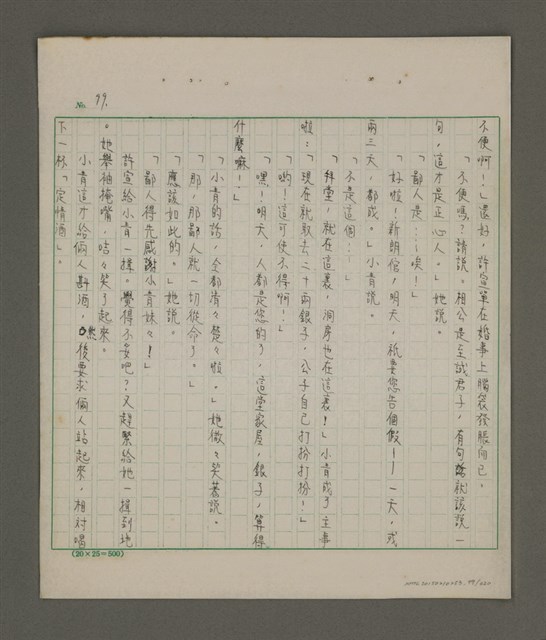 No. 99.
不便啊！」還好，許宣單在婚事上腦袋發脹而已。
「不便嗎？請說。相公是至誠君子，有句話就該說一
句，這才是正心人。」她說。
「鄙人是……唉！」
「好啦！新郎倌，明天，祇要您告個假——一天，或
兩三天，都成。」小青說。
「不是這個…」
「拜堂，就在這裏，洞房也在這裏！」小青成了主事
啦：「現在就取去二十兩銀子，公子自己打扮打扮！」
「喲！這可使不得啊！」
「嘿！明天，人都是您的了，這堂家屋，銀子，算得
什麼嘛！」
「小青的話，全都清々楚々啦。」她微々笑著說。
「那，那鄙人就一切從命了。」
「應該如此的。」她說。
「鄙人得先感謝小青妹々！」
許宣給小青一揖。覺得不妥吧？又趕緊給她一揖到地
。她舉袖掩嘴，咭々笑了起來。
小青這才給倆人斟酒，然後要求倆人站起來，相對喝
下一杯「定情酒」。
(20×25=500)